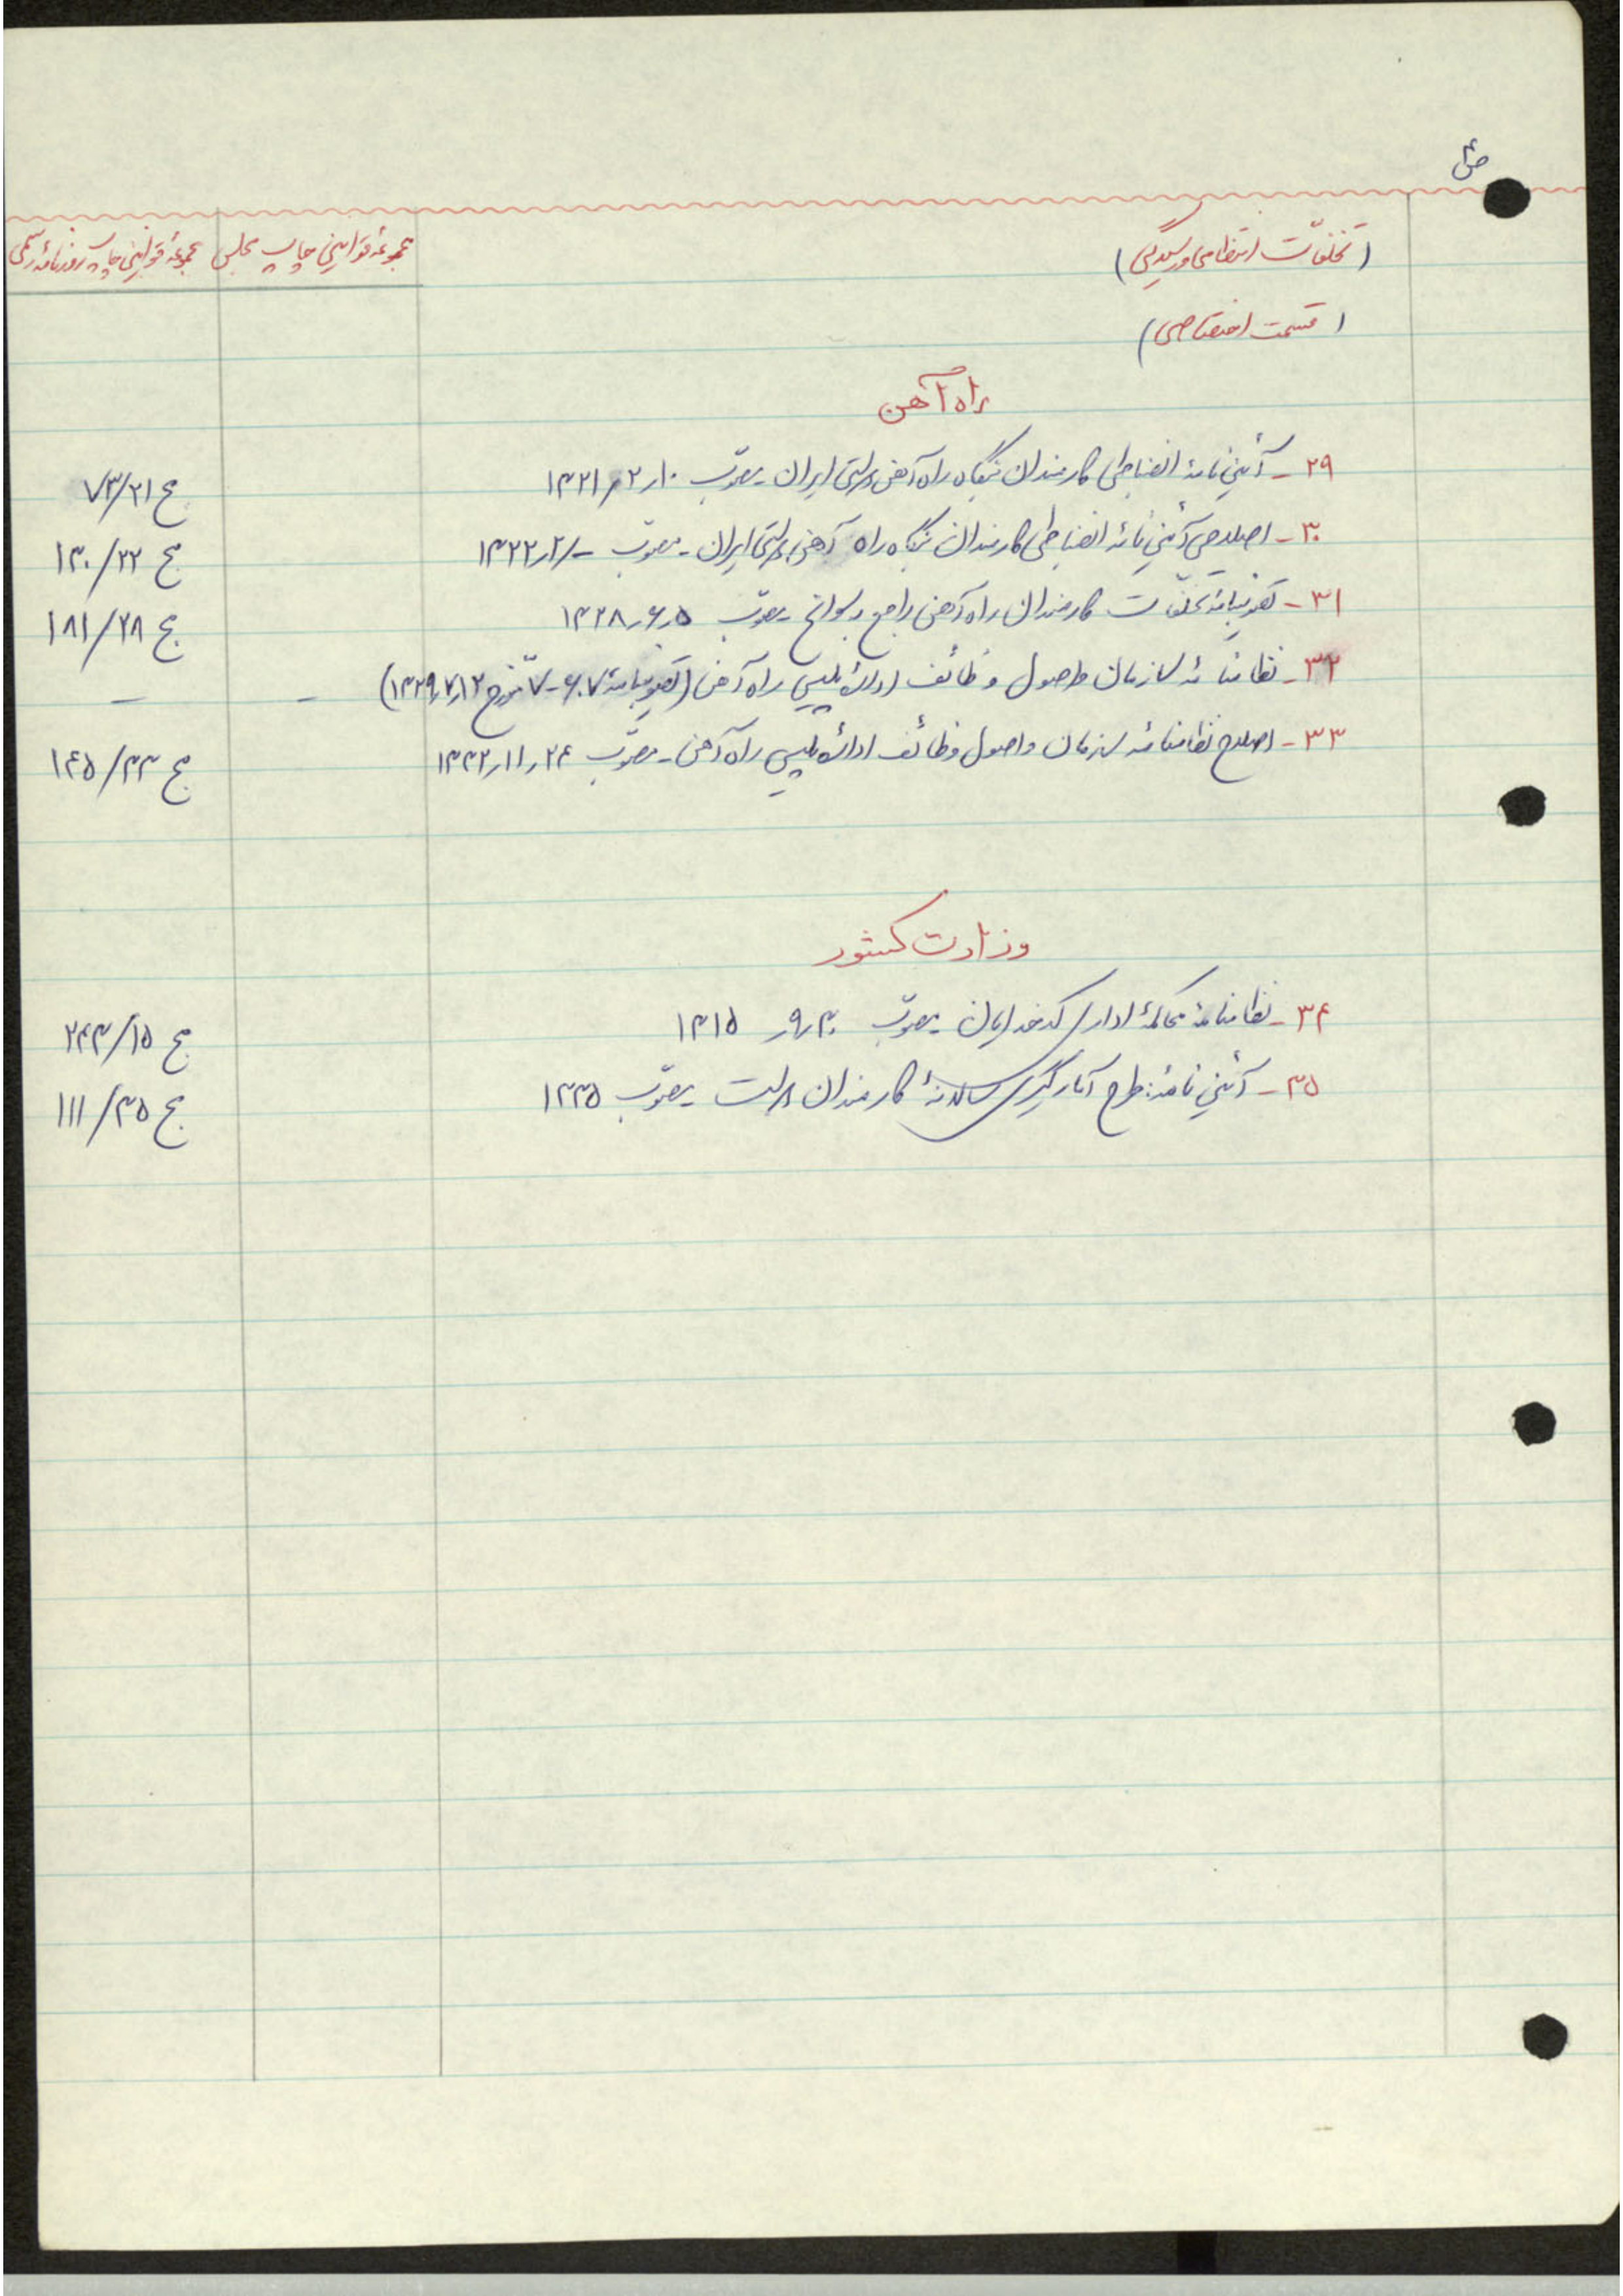 ص۴
(تخلفّات انتظامی و رسیدگی) مجموعهٔ قوانین چاپ مجلس مجموعهٔ قوانین چاپ روزنامهٔ رسمی
(قسمت اختصاصی)
راه آهن
۲۹ - آئین نامهٔ انضباطی کارمندان بنگاه راه آهن دولتی ایران - مصوّب ۱۰ر۲ر۱۳۲۱ ج ۷۳/۲۱
۳۰ - اصلاحی آئین نامهٔ انضباطی کارمندان بنگاه راه آهن دولتی ایران - مصوّب -ر۲ر۱۳۲۲ ج ۱۳۰/۲۲
۳۱ - تصویبنامهٔ تخلفّات کارمندان راه آهن راجع بسوانح - مصوّب ۵ر۶ر۱۳۲۸ ج ۱۸۱/۲۸
۳۲ - نظامنامهٔ سازمان و اصول وظائف ادارهٔ پلیس راه آهن (تصویبنامهٔ ۶۰۷-۷ مورّخ ۱۲ر۷ر۱۳۲۹) - -
۳۳ - اصلاح نظامنامهٔ سازمان و اصول وظائف ادارهٔ پلیس راه آهن - مصوّب ۲۴ر۱۱ر۱۳۳۲ ج ۱۴۵/۳۳
وزارت کشور
۳۴ - نظامنامهٔ محاکمهٔ اداری کدخدایان - مصوّب ۳۰ر۹ر۱۳۱۵ ج ۲۴۳/۱۵
۳۵ - آئین نامهٔ: طرح آمارگیری سالانهٔ کارمندان دولت - مصوّب ۱۳۳۵ ج ۱۱۱/۳۵